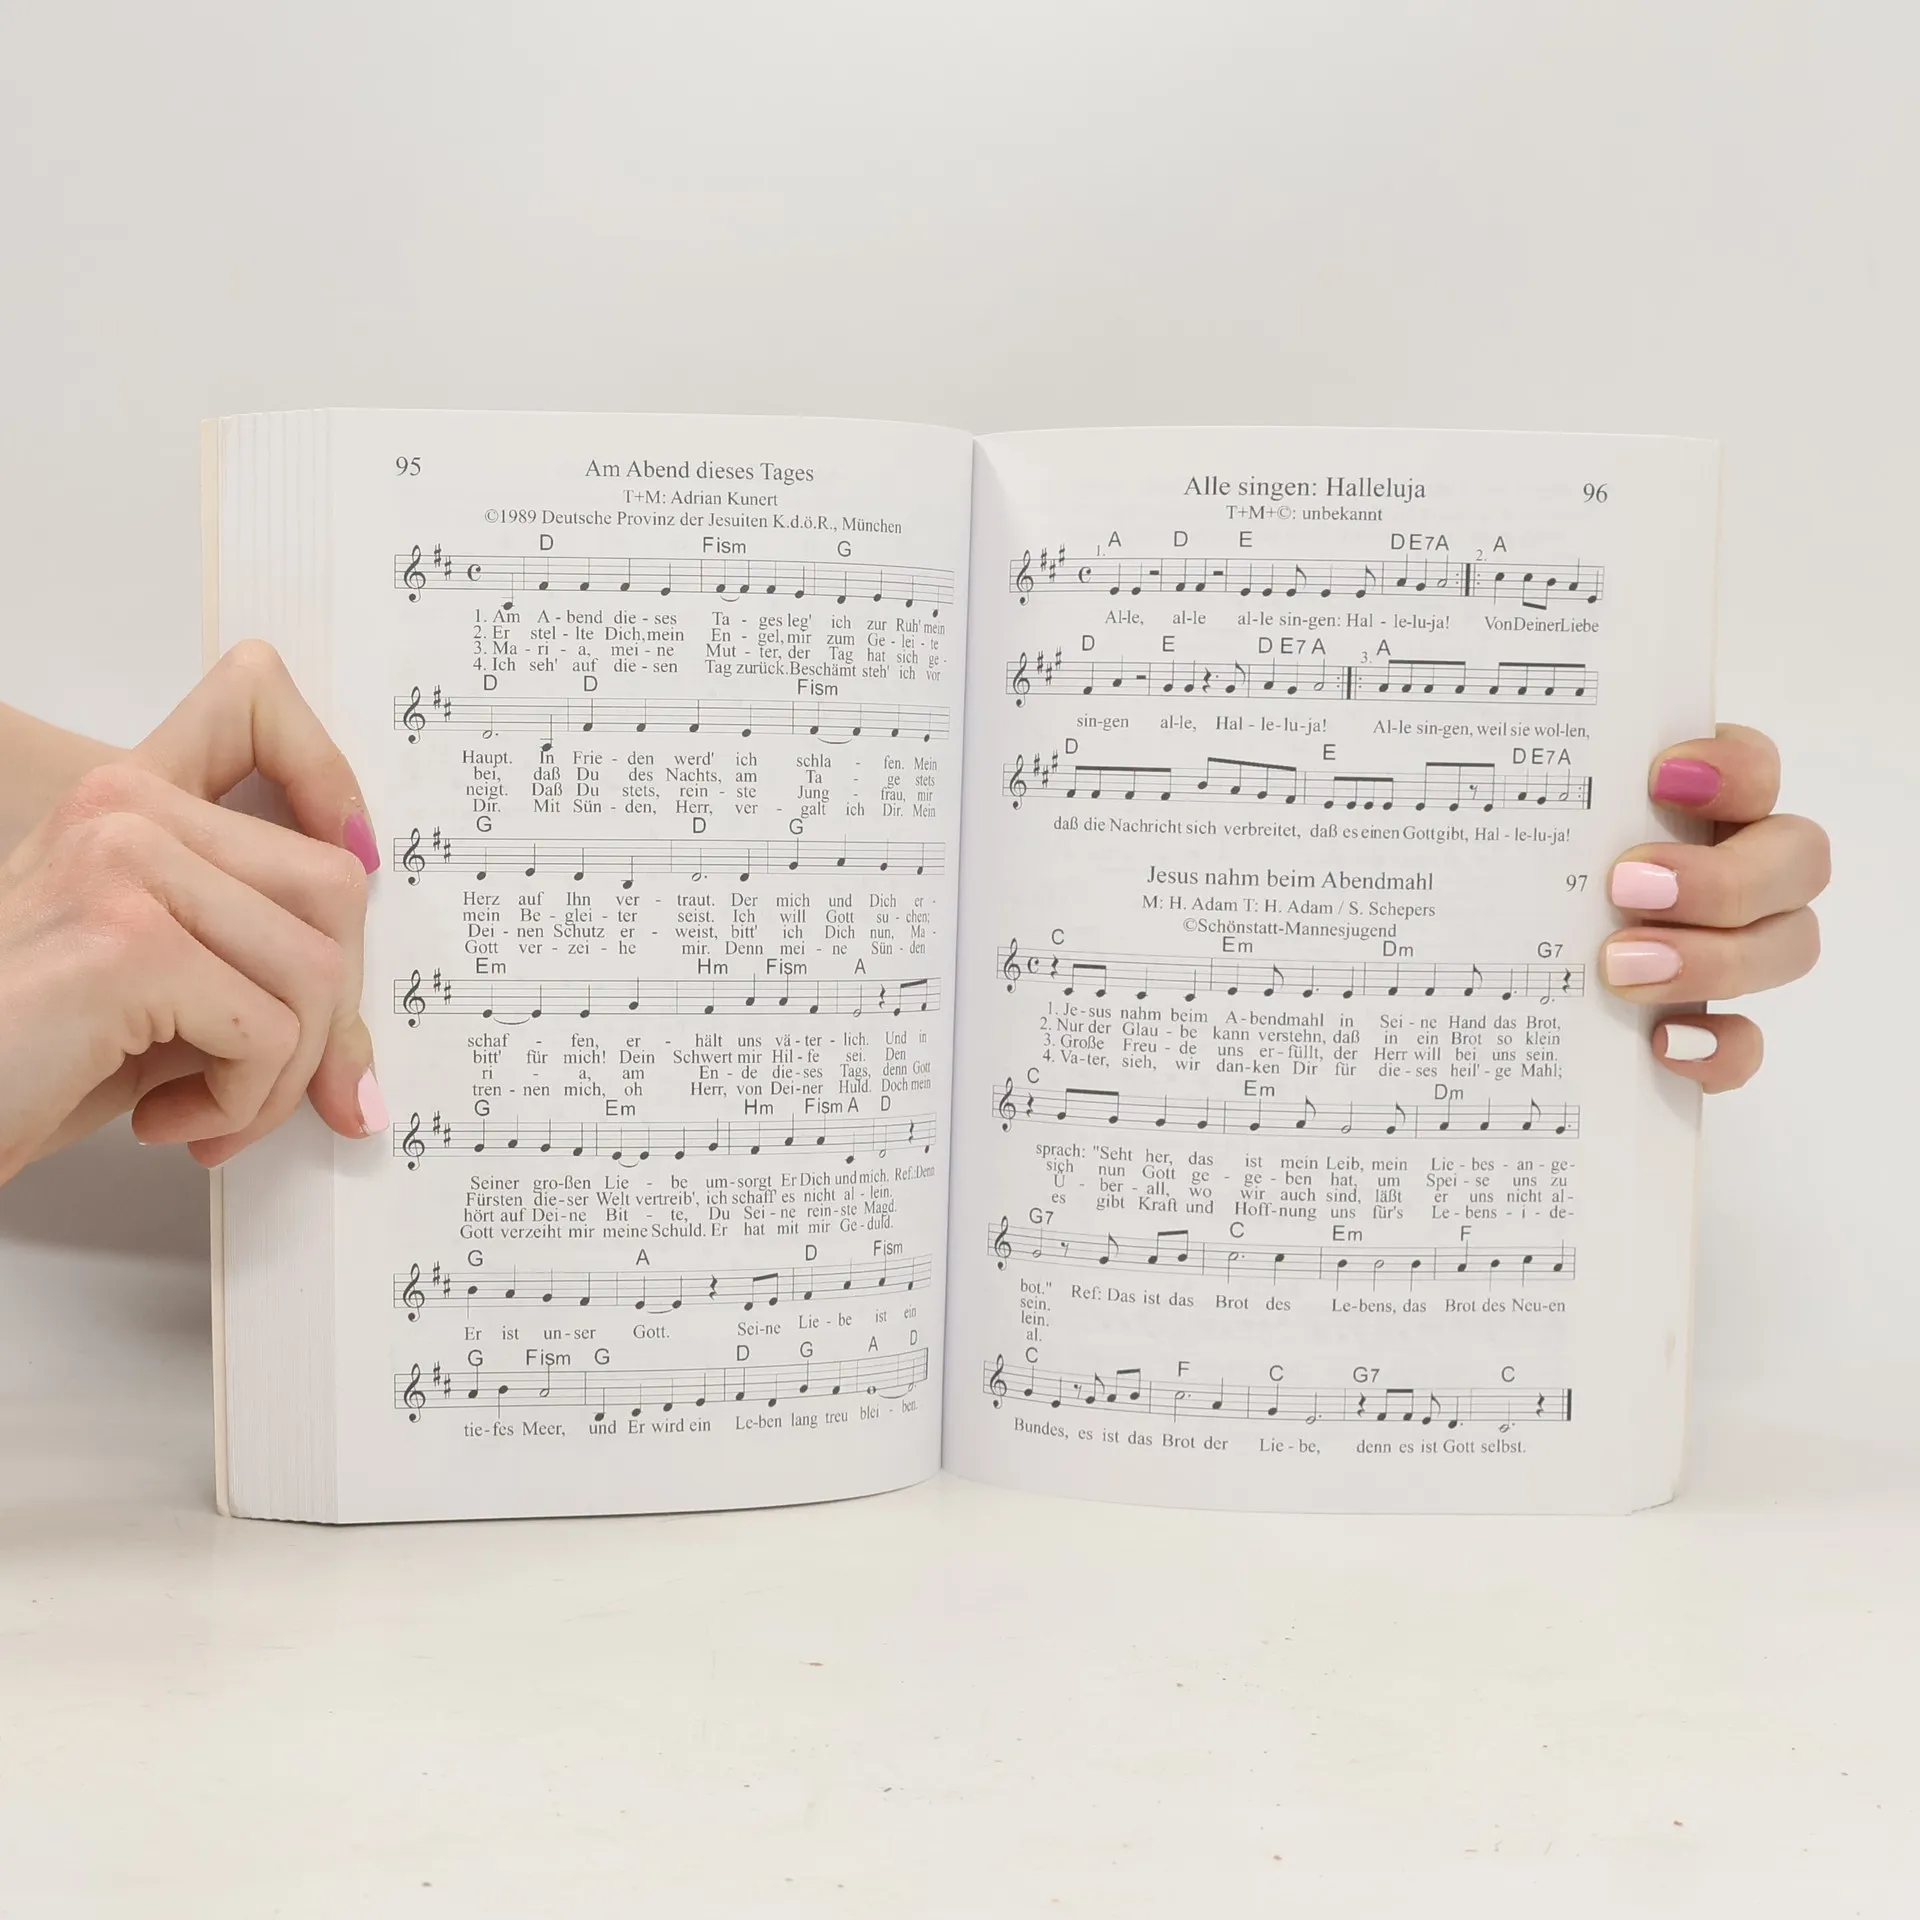 95
Am Abend dieses Tages
T+M: Adrian Kunert
©1989 Deutsche Provinz der Jesuiten K.d.ö.R., München
D Fism G
1. Am A - bend die - ses Ta - ges leg' ich zur Ruh' mein
2. Er stel - lte Dich, mein En - gel, mir zum Ge - lei - te
3. Ma - ri - a, mei - ne Mut - ter, der Tag hat sich ge -
4. Ich seh' auf die - sen Tag zurück. Beschämt steh' ich vor
D D Fism
Haupt. In Frie - den werd' ich schla - fen. Mein
bei, daß Du des Nachts, am Ta - ge stets
neigt. Daß Du stets, rein - ste Jung - frau, mir
Dir. Mit Sün - den, Herr, ver - galt ich Dir. Mein
G D G
Herz auf Ihn ver - traut. Der mich und Dich er -
mein Be - glei - ter seist. Ich will Gott su - chen;
Dei - nen Schutz er - weist, bitt' ich Dich nun, Ma -
Gott ver - zei - he mir. Denn mei - ne Sün - den
Em Hm Fism A
schaf - fen, er - hält uns vä - ter - lich. Und in
bitt' für mich! Dein Schwert mir Hil - fe sei. Den
ri - a, am En - de die - ses Tags, denn Gott
tren - nen mich, oh Herr, von Dei - ner Huld. Doch mein
G Em Hm Fism A D
Seiner gro-ßen Lie - be um-sorgt Er Dich und mich. Ref.:Denn
Fürsten die-ser Welt vertreib', ich schaff' es nicht al - lein.
hört auf Dei-ne Bit - te, Du Sei - ne rein-ste Magd.
Gott verzeiht mir meine Schuld. Er hat mit mir Ge-duld.
G A D Fism
Er ist un-ser Gott. Sei-ne Lie - be ist ein
G Fism G D G A D
tie-fes Meer, und Er wird ein Le-ben lang treu blei - ben.
Alle singen: Halleluja 96
T+M+©: unbekannt
1. A D E D E7 A 2. A
Al-le, al-le al-le sin-gen: Hal - le-lu-ja! Von Deiner Liebe
D E D E7 A 3. A
sin-gen al-le, Hal - le-lu-ja! Al-le sin-gen, weil sie wol-len,
D E D E7 A
daß die Nachricht sich verbreitet, daß es einen Gott gibt, Hal - le-lu-ja!
Jesus nahm beim Abendmahl 97
M: H. Adam T: H. Adam / S. Schepers
©Schönstatt-Mannesjugend
C Em Dm G7
1. Je-sus nahm beim A-bendmahl in Sei - ne Hand das Brot,
2. Nur der Glau - be kann verstehn, daß in ein Brot so klein
3. Große Freu - de uns er-füllt, der Herr will bei uns sein.
4. Va-ter, sieh, wir dan-ken Dir für die-ses heil'-ge Mahl;
C Em Dm
sprach: "Seht her, das ist mein Leib, mein Lie - bes - an - ge-
sich nun Gott ge - ge - ben hat, um Spei - se uns zu
Ü - ber - all, wo wir auch sind, läßt er uns nicht al-
es gibt Kraft und Hoff-nung uns für's Le - bens - i - de-
G7 C Em F
bot." Ref: Das ist das Brot des Le-bens, das Brot des Neu-en
sein.
lein.
al.
C F C G7 C
Bundes, es ist das Brot der Lie - be, denn es ist Gott selbst.